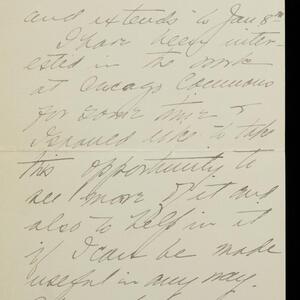 and extends to Jan 8th
I have been inter-
ested in the work
at Chicago Commons
for some time &
I should like to take
this opportunity to
see more of it and
also to help in it
if I can be made
useful in any way.